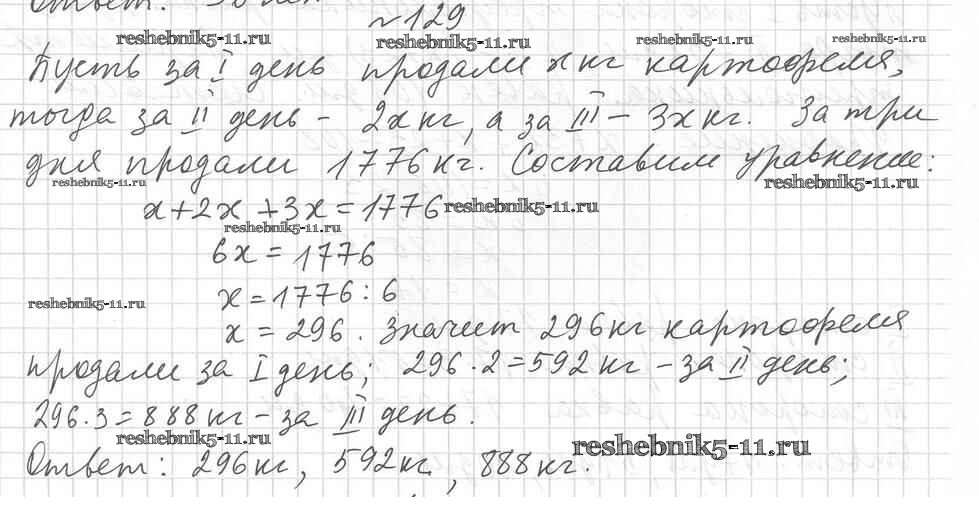 Ответ:
№129
reshebnik5-11.ru reshebnik5-11.ru reshebnik5-11.ru reshebnik5-11.ru
Пусть за I день продали x кг картофеля,
тогда за II день - 2x кг, а за III - 3x кг. За три
дня продали 1776 кг. Составим уравнение:
reshebnik5-11.ru reshebnik5-11.ru
x+2x+3x=1776 reshebnik5-11.ru
reshebnik5-11.ru
6x = 1776
x = 1776 : 6
reshebnik5-11.ru
x = 296. Значит 296 кг картофеля
продали за I день; 296 · 2 = 592 кг - за II день;
296 · 3 = 888 кг - за III день.
reshebnik5-11.ru reshebnik5-11.ru
Ответ: 296 кг, 592 кг, 888 кг.